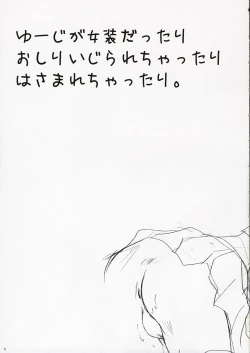 ゆーじが女装だったり
おしりいじられちゃったり
はさまれちゃったり。